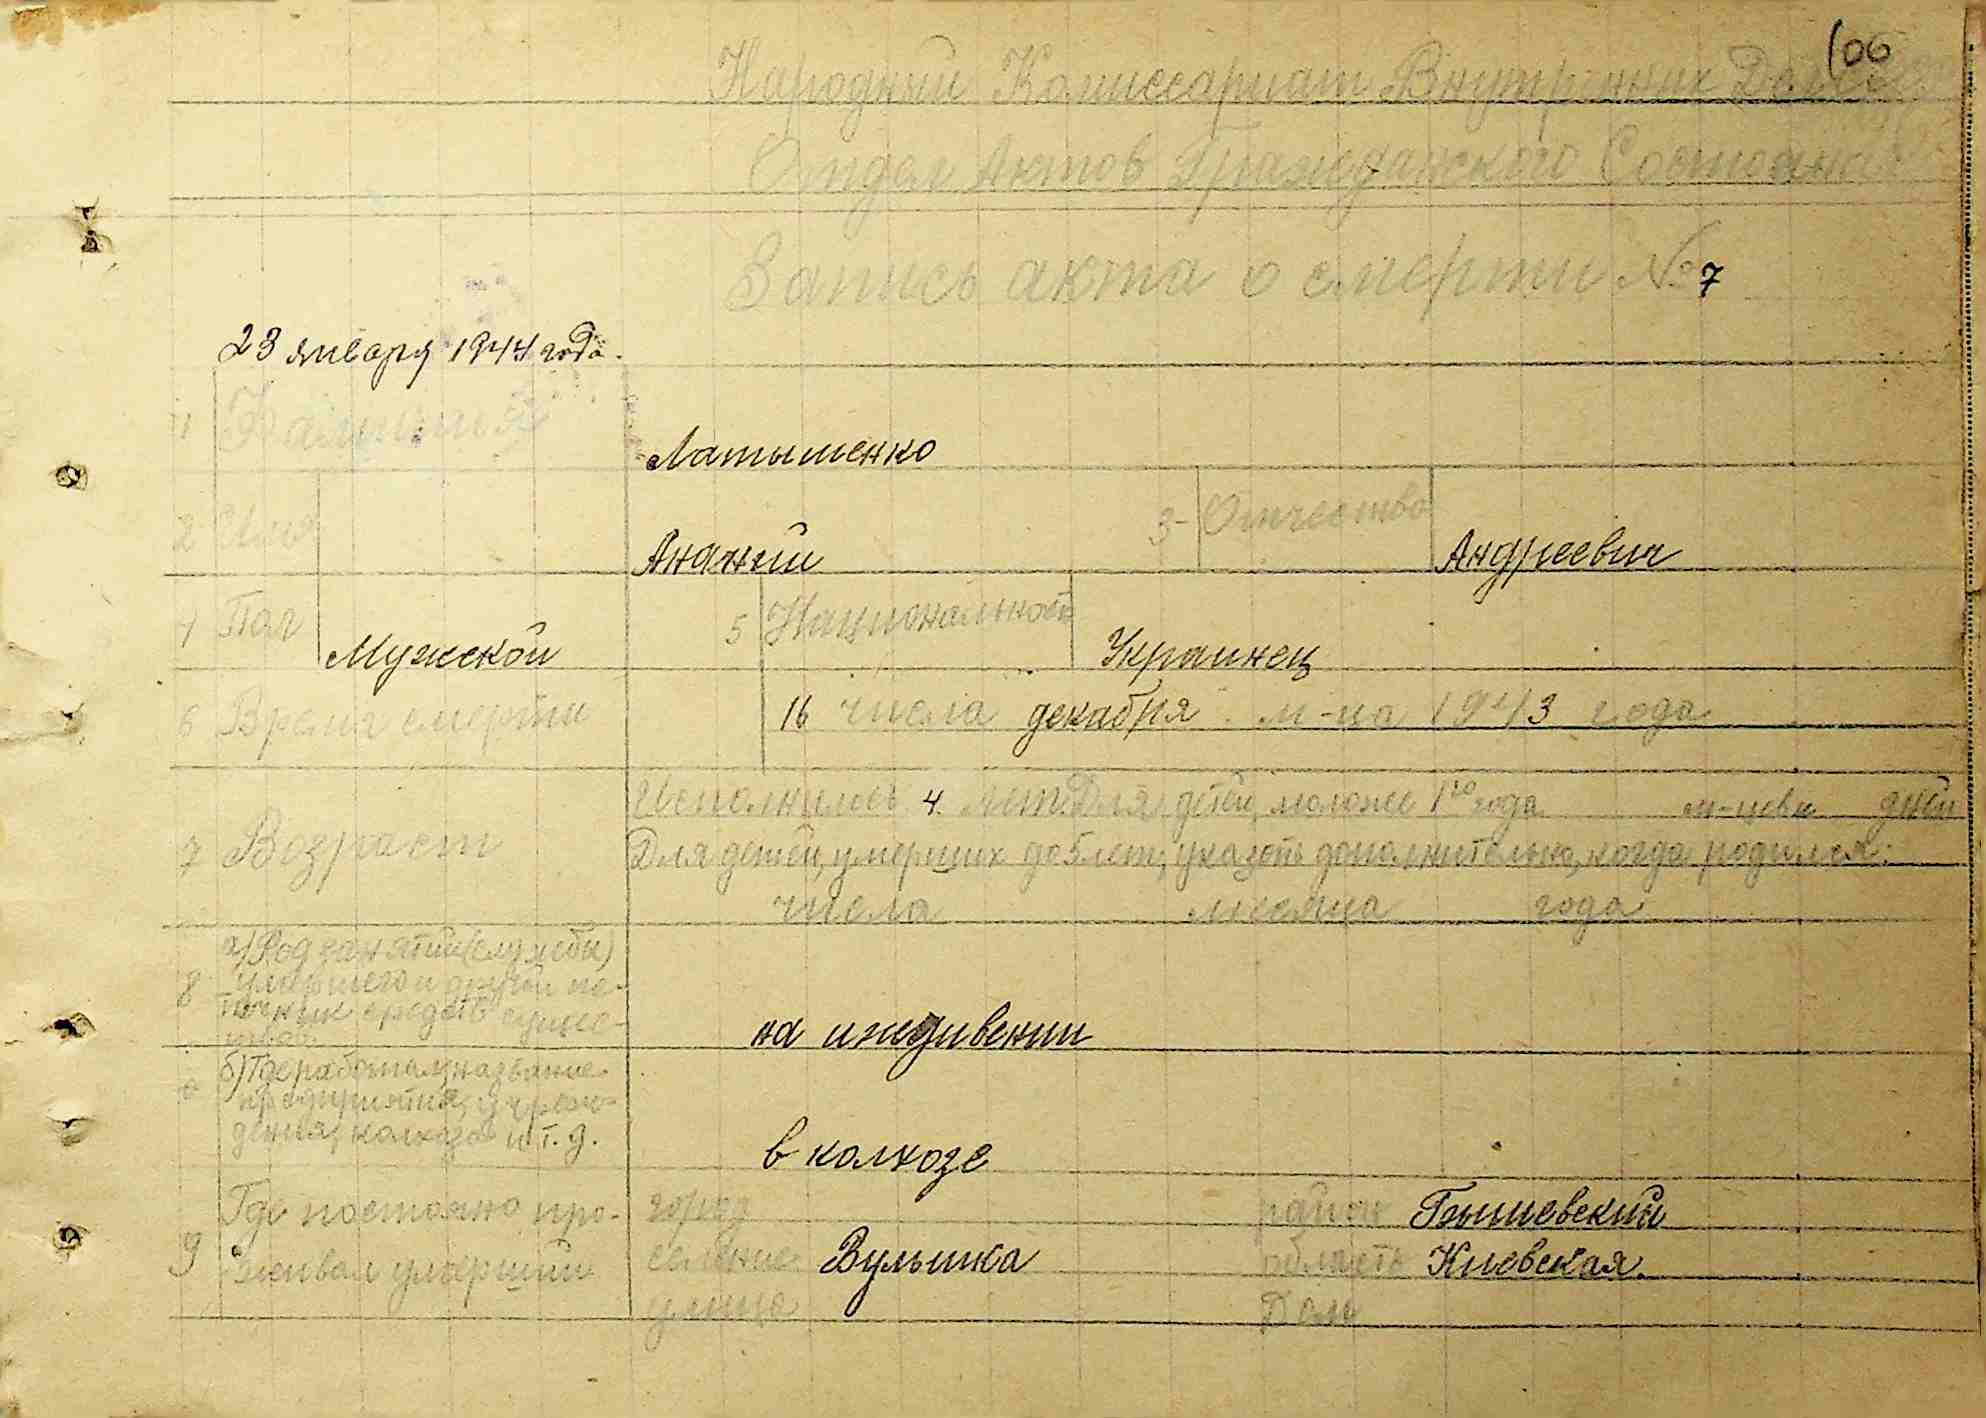 106
Народный Комиссариат Внутренних Дел
Отдел Актов Гражданского Состояния
Запись акта о смерти № 7
23 января 1944 года.
1 Фамилия Латышенко
2 Имя Ананий 3- Отчество Андреевич
4 Пол Мужской 5 Национальность Украинец
6 Время смерти 16 числа декабря м-ца 1943 года
Исполнилось 4 лет. Для детей, моложе 1го года м-цев дней
7 Возраст Для детей, умерших до 5 лет, указать дополнительно, когда родился:
числа месяца года
а) Род занятий (службы)
8 умершего и другой ис-
точник средств суще-
на иждивении
б) Где работал, название
предприятия, учреж-
дения, колхоза и т. д.
в колхозе
9 Где постоянно про-
живал умерший
город район Бышевский
селение Вулыика область Киевская.
улица Дом